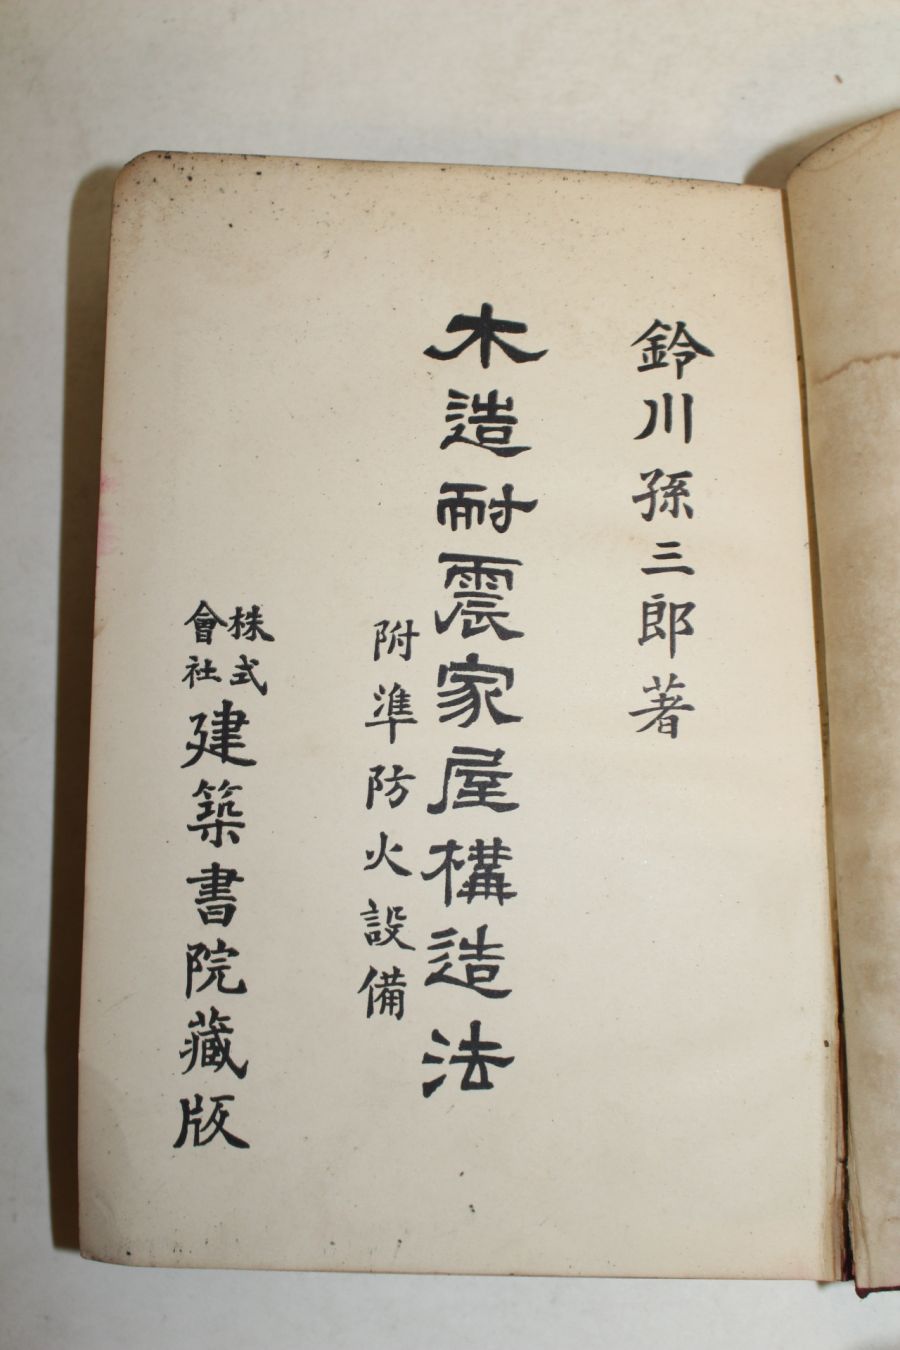 鈴川孫三郎著
木造耐震家屋構造法
附準防火設備
株式會社建築書院藏版